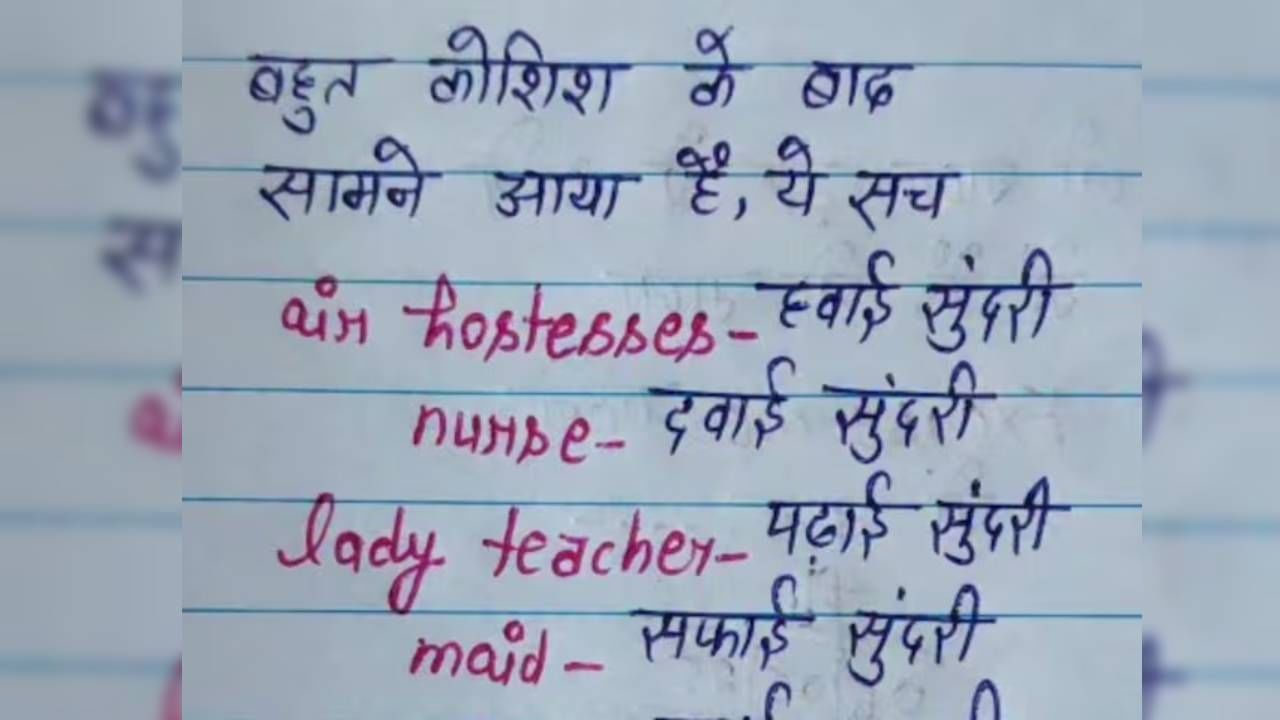 बहुत कोशिश के बाद
सामने आया है, ये सच
air hostesses- हवाई सुंदरी
nurse- दवाई सुंदरी
lady teacher- पढ़ाई सुंदरी
maid- सफाई सुंदरी